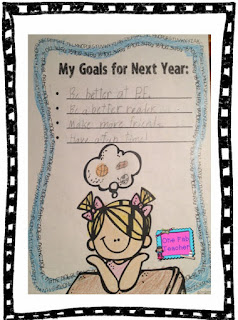 My Goals for Next Year:
Be better at P.E.
Be a better reader
Make more friends
Have
One Fab
Teacher